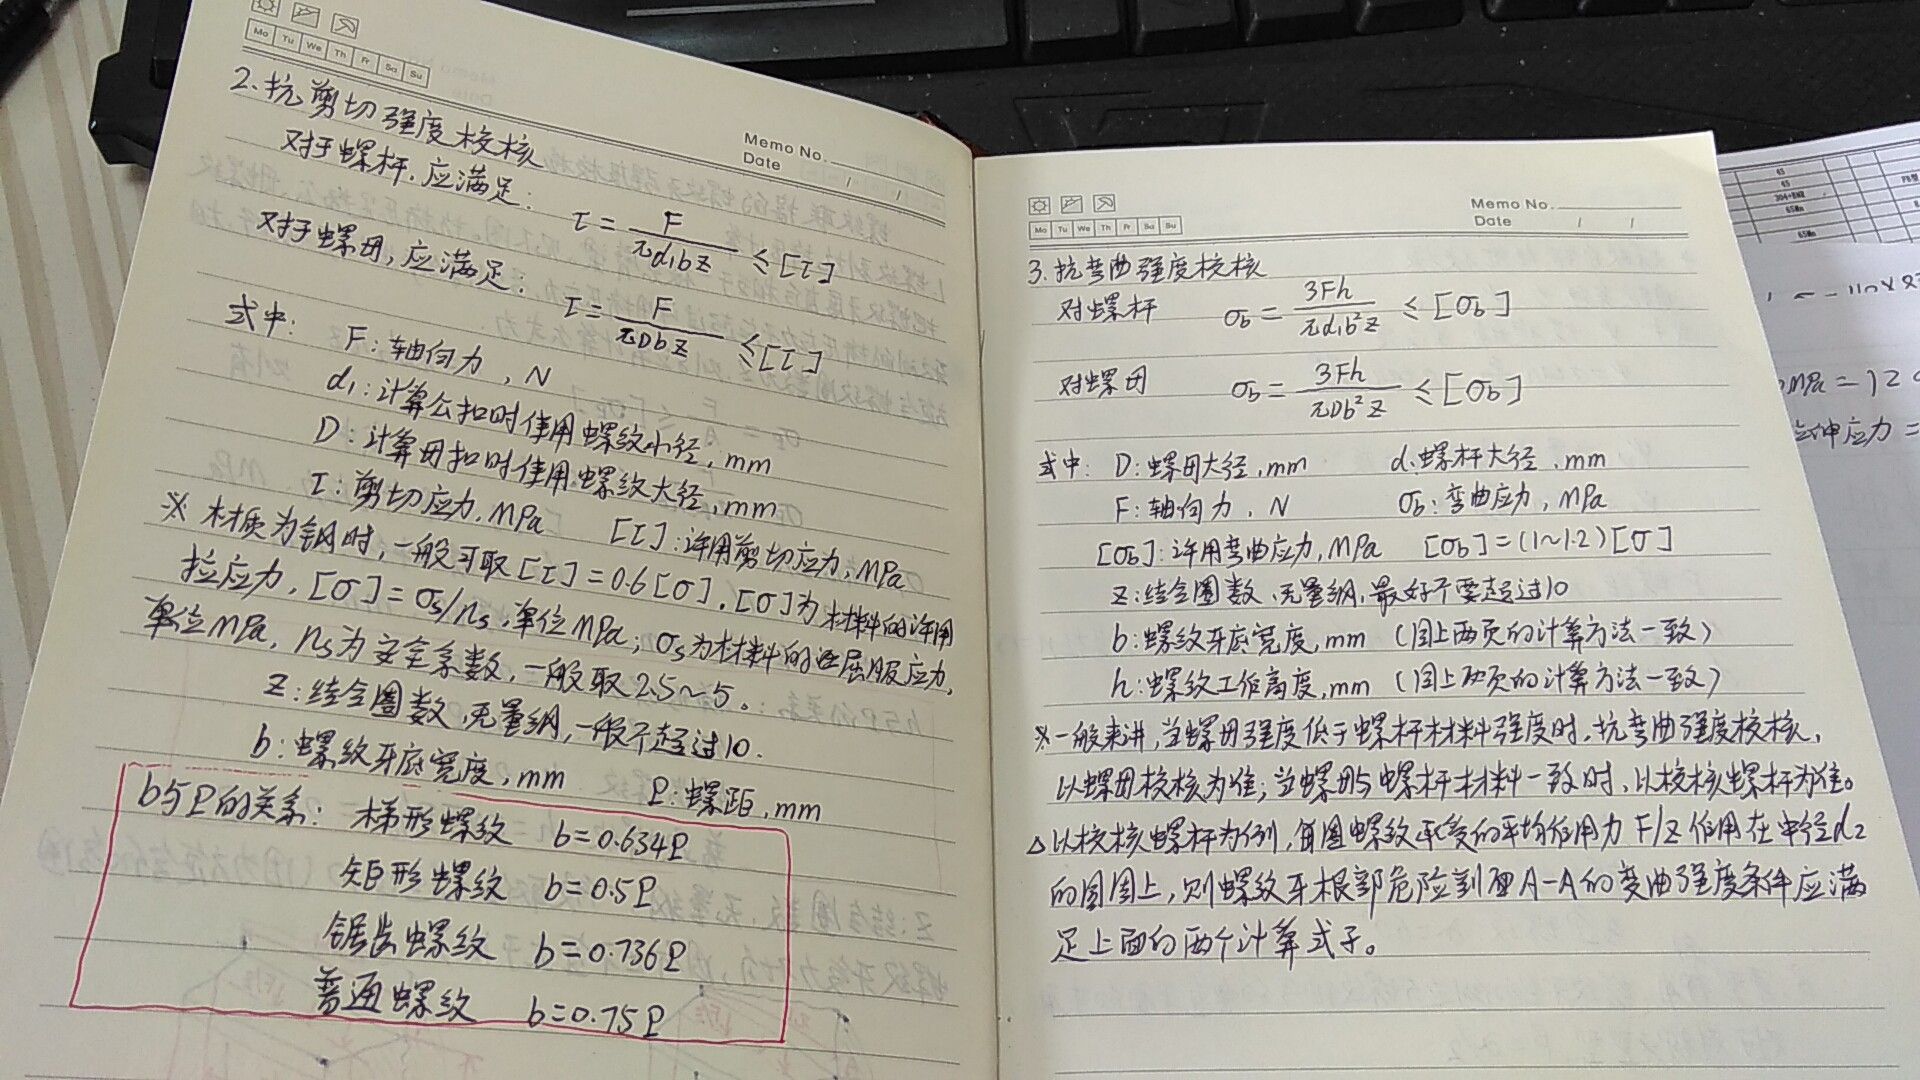 Mo Tu We Th Fr Sa Su
Memo No.
Date / /
2.抗剪切强度校核
对于螺杆,应满足:
τ=F/πd₁bz≤[τ]
对于螺母,应满足:
τ=F/πDbz≤[τ]
式中: F:轴向力,N
d₁:计算公扣时使用螺纹小径,mm
D:计算母扣时使用螺纹大径,mm
τ:剪切应力,MPa [τ]:许用剪切应力,MPa
※材质为钢时,一般可取[τ]=0.6[σ],[σ]为材料的许用
拉应力,[σ]=σs/ns,单位MPa;σs为材料的屈服应力,
单位MPa,ns为安全系数,一般取2.5~5。
z:结合圈数,无量纲,一般不超过10.
b:螺纹牙底宽度,mm P:螺距,mm
b与P的关系: 梯形螺纹 b=0.634P
矩形螺纹 b=0.5P
锯齿螺纹 b=0.736P
普通螺纹 b=0.75P
Mo Tu We Th Fr Sa Su
Memo No.
Date / /
3.抗弯曲强度校核
对螺杆 σb=3Fh/πd₁b²z≤[σb]
对螺母 σb=3Fh/πDb²z≤[σb]
式中: D:螺母大径,mm d:螺杆大径,mm
F:轴向力,N σb:弯曲应力,MPa
[σb]:许用弯曲应力,MPa [σb]=(1~1.2)[σ]
z:结合圈数,无量纲,最好不要超过10
b:螺纹牙底宽度,mm (同上两页的计算方法一致)
h:螺纹工作高度,mm (同上两页的计算方法一致)
※一般来讲,当螺母强度低于螺杆材料强度时,抗弯曲强度校核,
以螺母校核为准;当螺母与螺杆材料一致时,以校核螺杆为准。
△以校核螺杆为例,每圈螺纹承受的平均作用力F/z作用在中径d2
的圆周上,则螺纹牙根部危险剖面A-A的弯曲强度条件应满
足上面的两个计算式子。
65
65
304+BNR
65Mn
65Mn
MPa=12
拉伸应力=